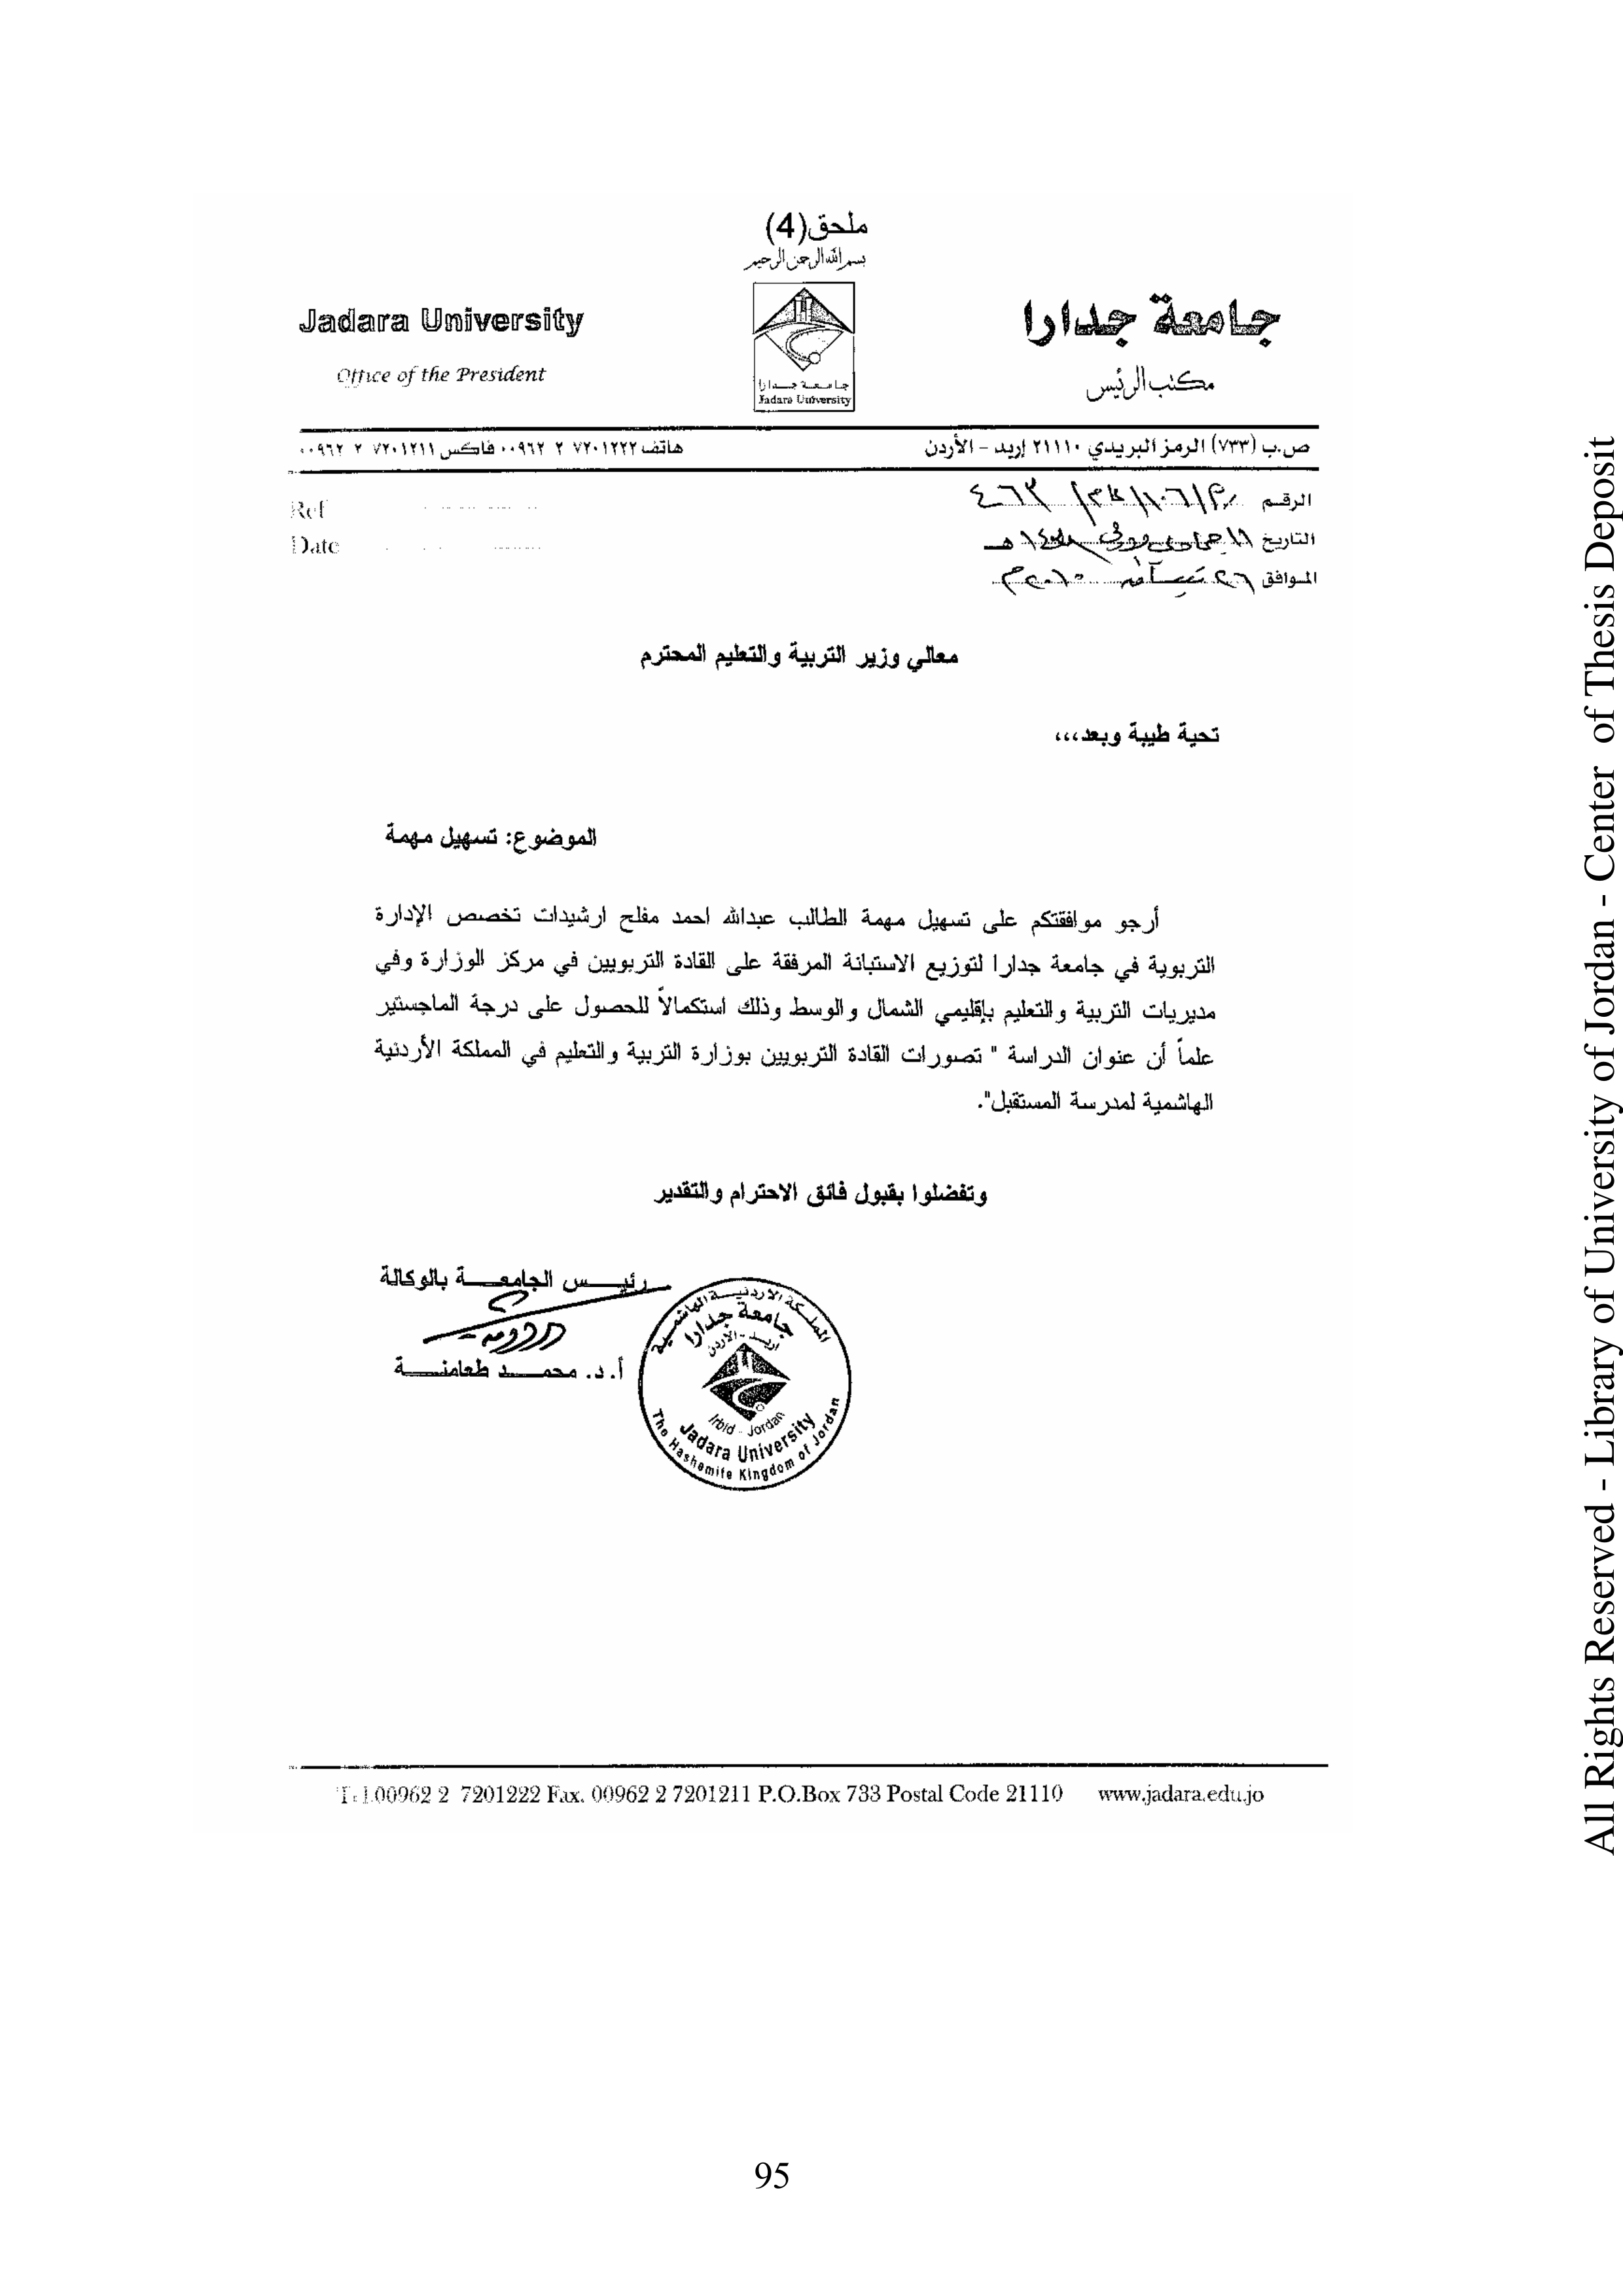 ملحق(4)
بسم الله الرحمن الرحيم
Jadara University
جامعة جدارا
Office of the President
مكتب الرئيس
جامعة جدارا
Jadara University
ص.ب (٧٣٣) الرمز البريدي ٢١١١٠ إربد - الأردن
هاتف ٧٢٠١٢٢٢ ٢ ٠٠٩٦٢ فاكس ٧٢٠١٢١١ ٢ ٠٠٩٦٢
Ref
الرقم
Date
التاريخ
الموافق
معالي وزير التربية والتعليم المحترم
تحية طيبة وبعد،،،
الموضوع: تسهيل مهمة
أرجو موافقتكم على تسهيل مهمة الطالب عبدالله احمد مفلح ارشيدات تخصص الإدارة
التربوية في جامعة جدارا لتوزيع الاستبانة المرفقة على القادة التربويين في مركز الوزارة وفي
مديريات التربية والتعليم بإقليمي الشمال والوسط وذلك استكمالاً للحصول على درجة الماجستير
علماً أن عنوان الدراسة " تصورات القادة التربويين بوزارة التربية والتعليم في المملكة الأردنية
الهاشمية لمدرسة المستقبل".
وتفضلوا بقبول فائق الاحترام والتقدير
رئيـس الجامعـة بالوكالة
أ.د. محمـد طعامنـة
المملكة الاردنية الهاشمية
جامعة جدارا
اربد - الاردن
Irbid - Jordan
Jadara University
The Hashemite Kingdom of Jordan
Tel.00962 2 7201222 Fax. 00962 2 7201211 P.O.Box 733 Postal Code 21110 www.jadara.edu.jo
95
All Rights Reserved - Library of University of Jordan - Center of Thesis Deposit